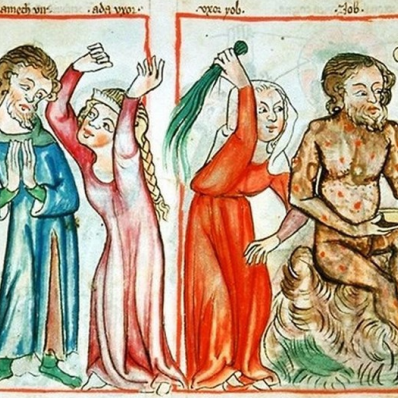 amech vir · ada vxor · vxor yob · Job ·